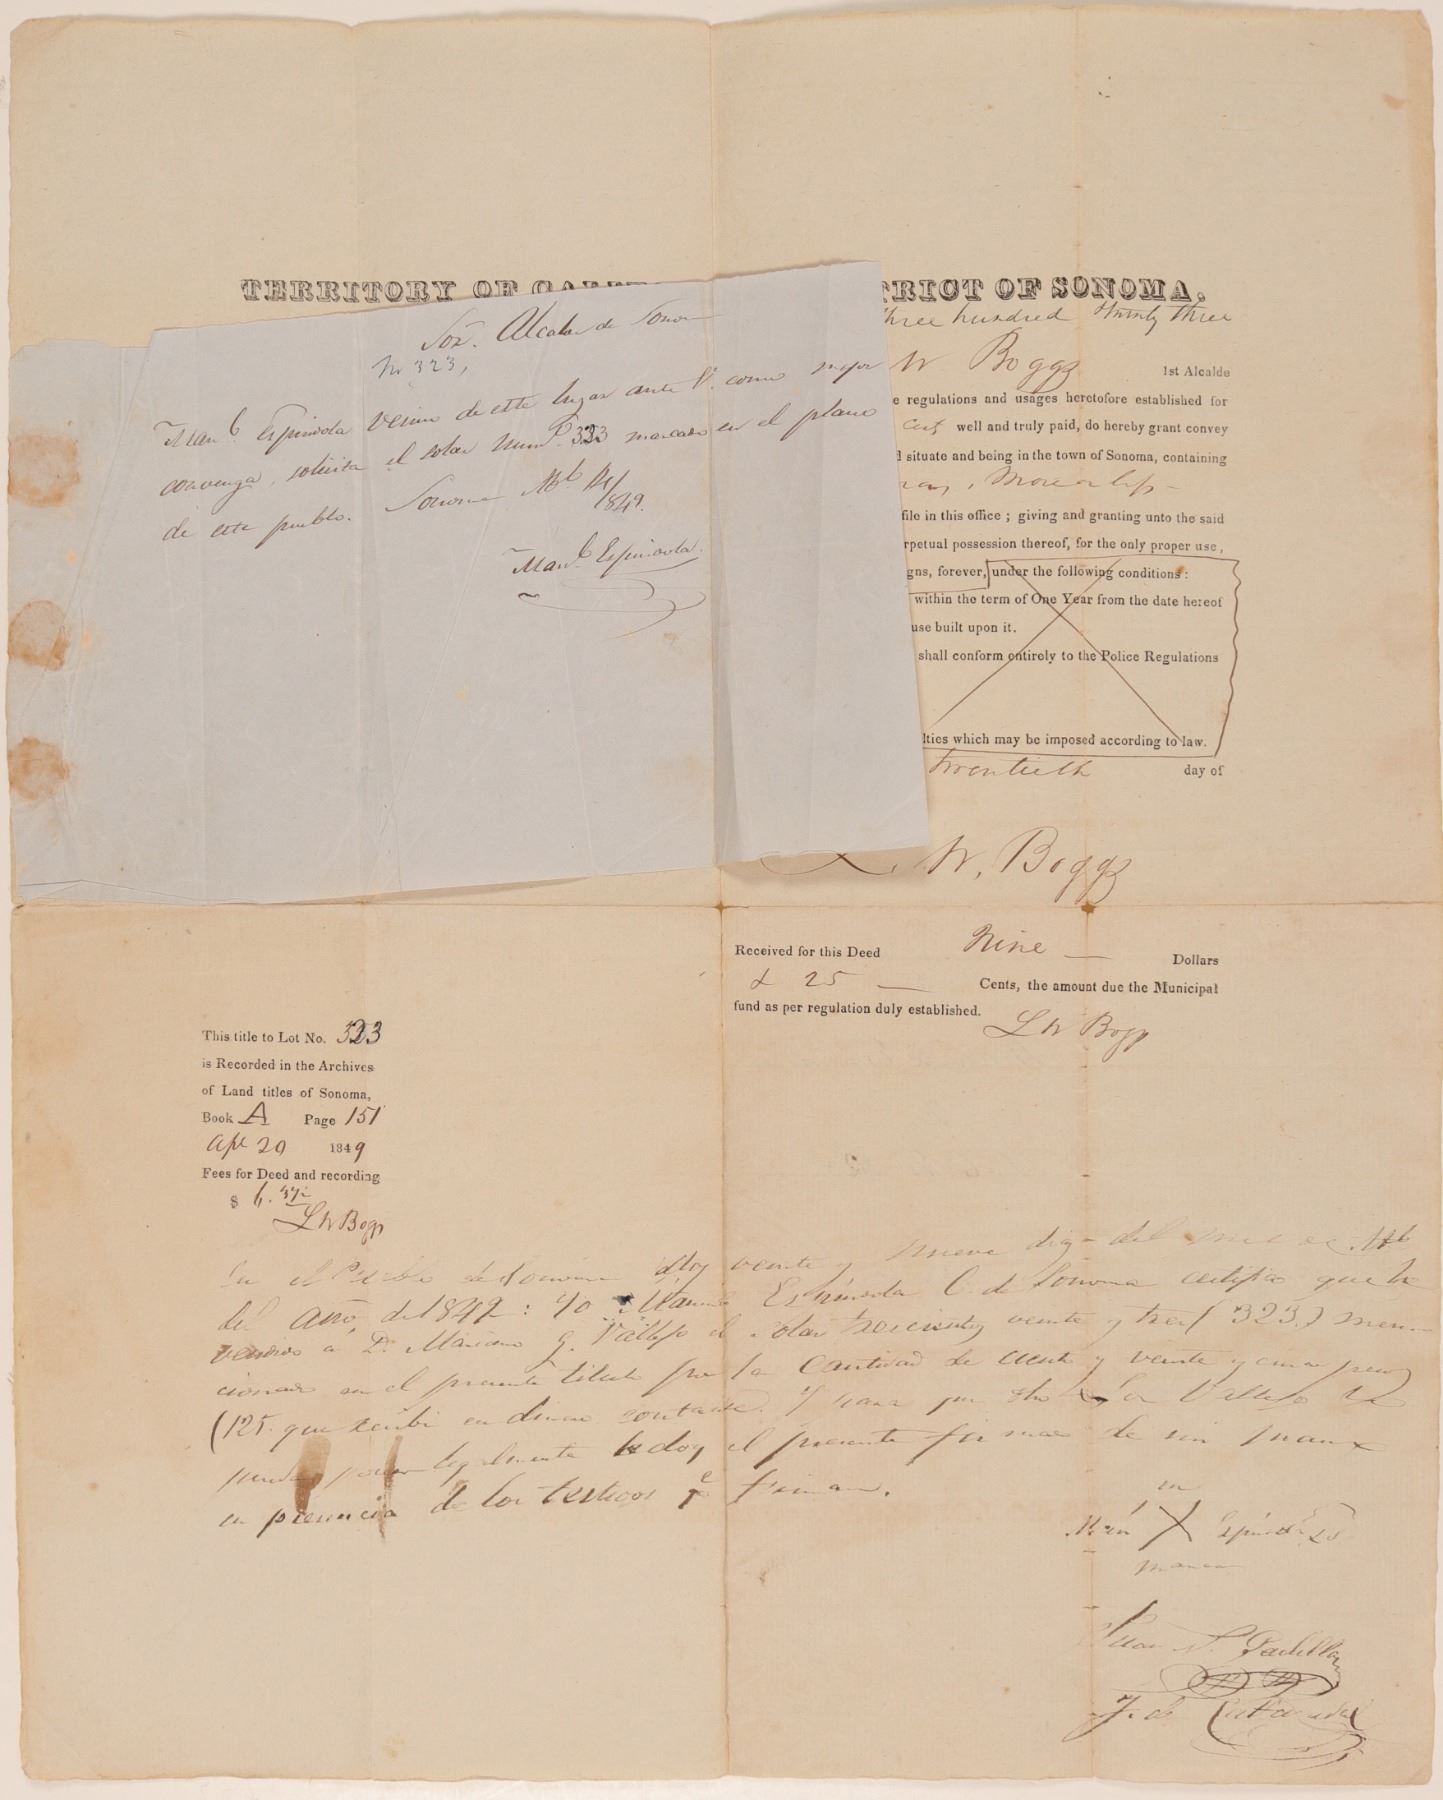 TERRITORY OF TRICT OF SONOMA.
Three hundred Twenty three
W Boggs 1st Alcalde
e regulations and usages heretofore established for
well and truly paid, do hereby grant convey
d situate and being in the town of Sonoma, containing
More or less
file in this office ; giving and granting unto the said
rpetual possession thereof, for the only proper use,
gns, forever, under the following conditions :
within the term of One Year from the date hereof
use built upon it.
shall conform entirely to the Police Regulations
lties which may be imposed according to law.
twentieth day of
L. W. Boggs
Sor. Alcalde de Sonoma
No 323,
Manl. Espinosa vecino de este lugar ante V. como mejor
convenga, solicita el solar num. 323 marcado en el plano
de este pueblo. Sonoma
1849.
Manl. Espinosa
Received for this Deed Nine — Dollars
& 25 — Cents, the amount due the Municipal
fund as per regulation duly established.
L W Boggs
This title to Lot No. 323
is Recorded in the Archives
of Land titles of Sonoma,
Book A Page 151
Apl 20 1849
Fees for Deed and recording
$
L W Boggs
En el Pueblo de Sonoma veinte y nueve del mes de
del año de 1849 : Yo Manuel de Sonoma certifico que he
vendido a Dn. Mariano G. Vallejo el solar trecientos veinte y tres (323.) men-
cionado en el presente titulo por la cantidad de ciento y veinte y cinco pesos
(125. que recibi en dinero Y para que Vallejo
legalmente le doy el presente firmado de mi
en presencia de los testigos qe firman.
Juan N. Padilla